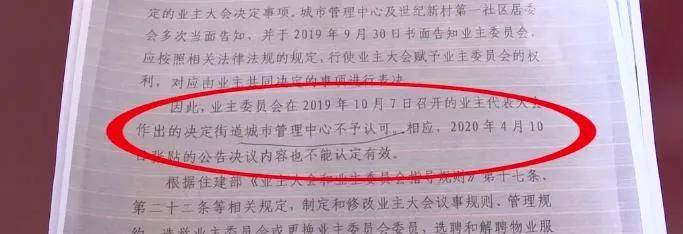 定的业主大会决定事项。城市管理中心及世纪新村第一社区居委
会多次当面告知、并于2019年9月30日书面告知业主委员会,
应按照相关法律法规的规定,行使业主大会赋予业主委员会的权
利,对应由业主共同决定的事项进行表决。
因此,业主委员会在2019年10月7日召开的业主代表大会
作出的决定街道城市管理中心不予认可。相应,2020年4月10
日张贴的公告决议内容也不能认定有效。
根据住建部《业主大会和业主委员会指导规则》第十七条、
第二十二条等相关规定,制定和修改业主大会议事规则、管理规
约、选举业主委员会或更换业主委员会委员、选聘和解聘物业服